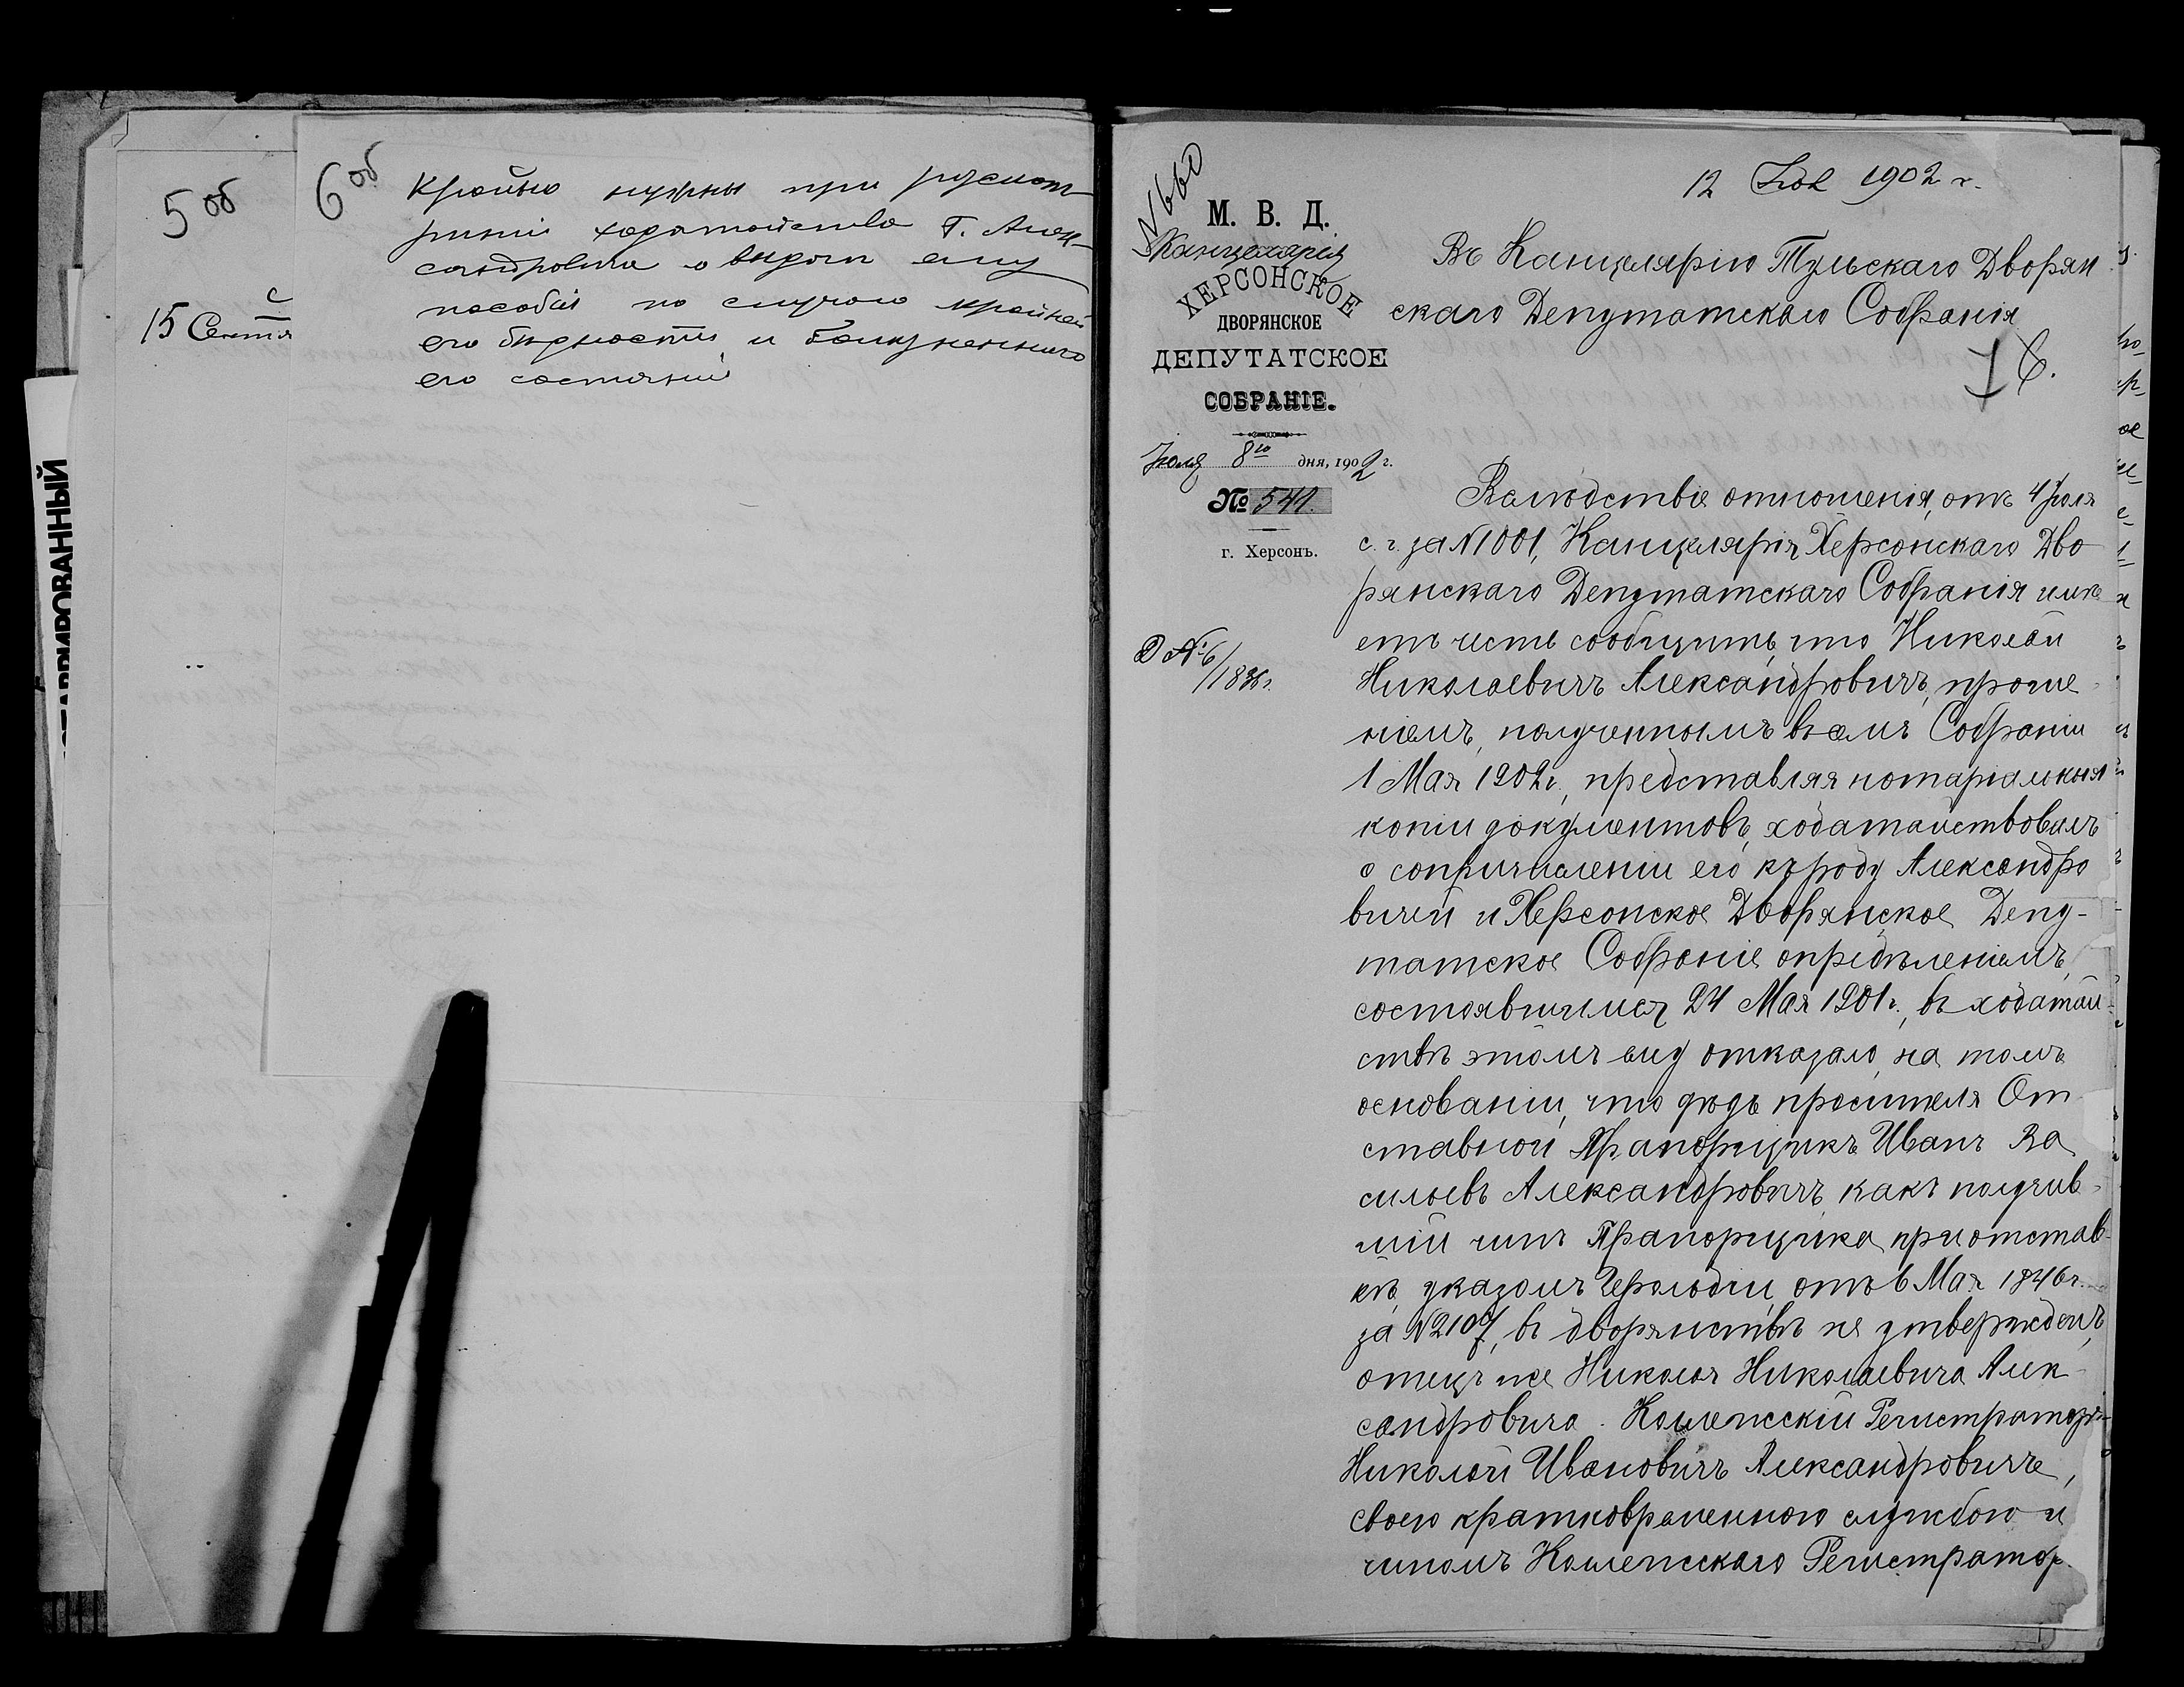 5 об
15 Сентя
6 об
крайне нужны при разсмот-
рении ходатайства Г. Алек-
сандровича о выдаче ему
пособия по случаю крайней
его бедности и болезненного
его состояния
СТАВРИРОВАННЫЙ
№ 660
М. В. Д.
Канцелярія
ХЕРСОНСКОЕ
ДВОРЯНСКОЕ
ДЕПУТАТСКОЕ
СОБРАНІЕ.
Іюля 8го дня, 1902 г.
№ 541.
г. Херсонъ.
Д № 6/
12 1902 г.
Въ Канцелярію Тульскаго Дворян
скаго Депутатскаго Собранія
Вслѣдствіе отношенія, отъ 4 Іюля
с. г. за №1001, Канцелярія Херсонскаго Дво
рянскаго Депутатскаго Собранія имѣ
етъ честь сообщить, что Николай
Николаевичъ Александровичъ, проше
ніемъ, полученнымъ въ семъ Собраніи
1 Мая 1902 г., представляя нотаріальныя
копіи документовъ, ходатайствовалъ
о сопричисленіи его къ роду Александро
вичей и Херсонское Дворянское Депу-
татское Собраніе опредѣленіемъ,
состоявшимся 24 Мая 1901 г., въ ходатай-
ствѣ этомъ ему отказало, на томъ
основаніи, что дѣдъ просителя От
ставной Прапорщикъ Иванъ Ва
сильевъ Александровичъ какъ получив-
шій чинъ Прапорщика при отстав-
кѣ, указомъ Герольдіи, отъ 6 Мая 1846 г.
за №2107, въ дворянствѣ не утвержденъ,
отецъ же Николая Николаевича Алек-
сандровича. Коллежскій Регистраторъ
Николай Ивановичъ Александровичъ,
своею кратковременною службою и
чиномъ Коллежскаго Регистратор